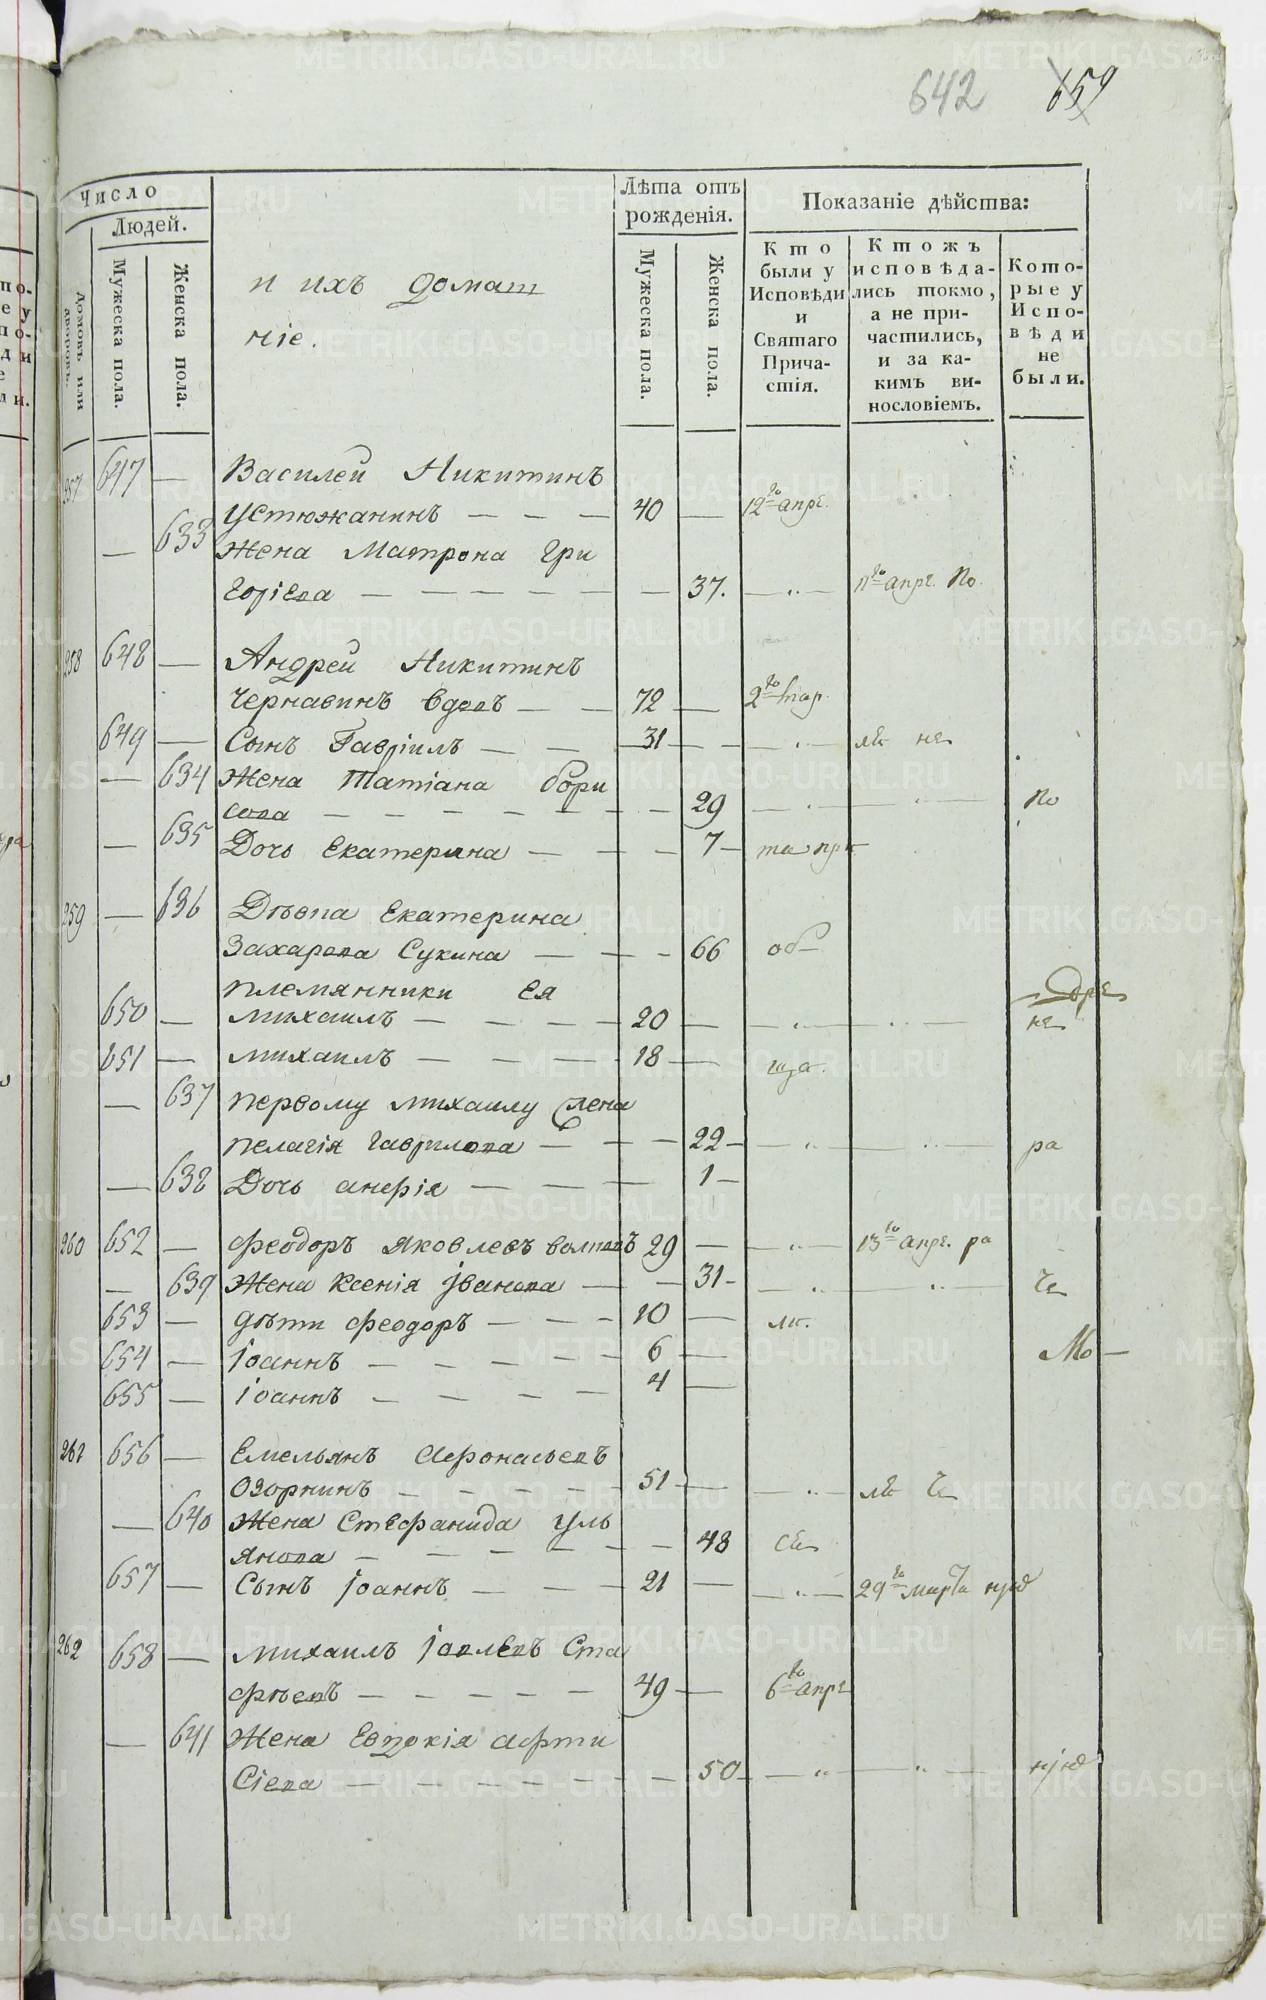 642 659
Число
Людей.
Домовъ или дворовъ.
Мужеска пола.
Женска пола.
и ихъ домаш
ніе.
Лѣта отъ
рожденія.
Мужеска пола.
Женска пола.
Показаніе дѣйства:
Кто
были у
Исповѣди
и
Святаго
Прича-
стія.
Ктожъ
исповѣда-
лись токмо,
а не при-
частились,
и за ка-
кимъ ви-
нословіемъ.
Кото-
рые у
Испо-
вѣди
не
были.
257 647 — Василей Никитинъ
Устюжанинъ — — — 40 — 12го апрe.
— 633 Жена Матрона Гри
горіева — — — — — — 37. — „ — 11го апрe. По.
258 648 — Андрей Никитинъ
Чернавинъ вдовъ — — 72 — 2го мар.
649 — Сынъ Гавріилъ — — — 31 — — — „ — не
— 634 Жена Татіана бори
сова — — — — — — 29 — „ — „ — По
— 635 Дочь Екатерина — — — 7 —
259 — 636 Дѣвка Екатерина
Захарова Сукина — — — 66 об
племянники ея
650 — Михаилъ — — — — 20 — — „ — „ — не
651 — Михаилъ — — — 18 — ща.
— 637 первому михаилу жена
пелагія гаврилова — — — 22 — — „ — „ — ра
— 638 Дочь анфія — — — — 1 —
260 652 — Феодоръ Яковлевъ волковъ 29 — — „ — 13го апре. ра
— 639 Жена Ксенія Іванова — — 31 — — „ — „ — Че
653 — дѣти феодоръ — — — 10 — ли.
654 — Іоаннъ — — — — — 6 — Мо —
655 — Іоаннъ — — — — 4 —
261 656 — Емельянъ Афонасьевъ
Озорнинъ — — — — — 51 — — „ — Че
— 640 Жена Стефанида Уль
янова — — — — — — 48
657 — Сынъ Іоаннъ — — — 21 — — „ — 29го марта
262 658 — Михаилъ Іовлевъ Ста
фѣевъ — — — — — 49 — 6го апре
— 641 Жена Евдокія афти
Сіева — — — — — — — 50 — — „ — „ —
METRIKI.GASO-URAL.RU